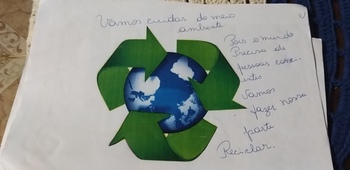 Vamos cuidar do meio
ambiente
Pois o mundo
Precisa de
pessoas consci-
entes
Vamos
fazer nossa
parte
Reciclar.